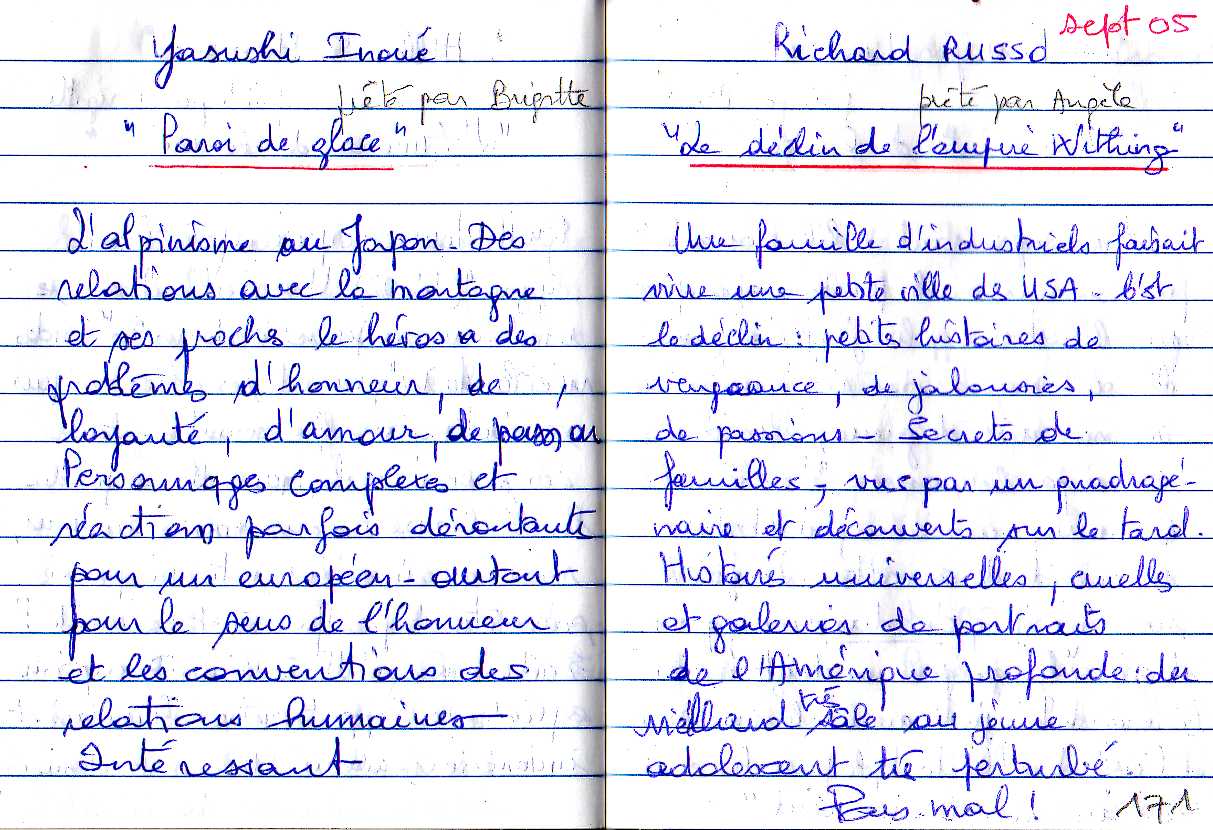 Yasushi Inoué
prêté par Brigitte
"Paroi de glace"
L'alpinisme au Japon - Des
relations avec la montagne
et ses prochs le héros a des
problèmes d'honneur, de ,
loyauté, d'amour, de
Personnages complexes et
réactions parfois déroutante
pour un européen - autant
pour le sens de l'honneur
et les conventions des
relations humaines
Intéressant
sept 05
Richard RUSSO
prêté par Angèle
"Le déclin de l'empire Withing"
Une famille d'industriels faisait
vivre une petite ville des USA - C'est
le déclin : petits histoires de
vengeance, de jalousies,
de passions - Secrets de
familles, vus par un quadragé-
naire et découverts sur le tard.
Histoires universelles, cruelles
et galeries de portraits
de l'Amérique profonde : du
vieillard très sâle au jeune
adolescent très perturbé.
Pas mal !
171